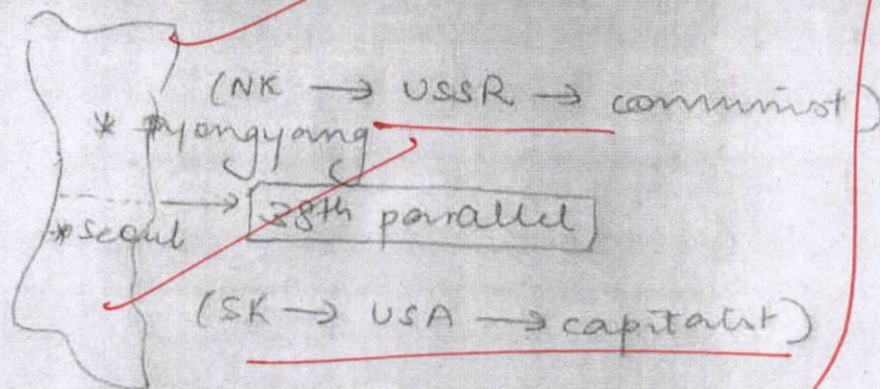 (NK → USSR → communist)
* Pyongyang
38th parallel
* Seoul
(SK → USA → capitalist)